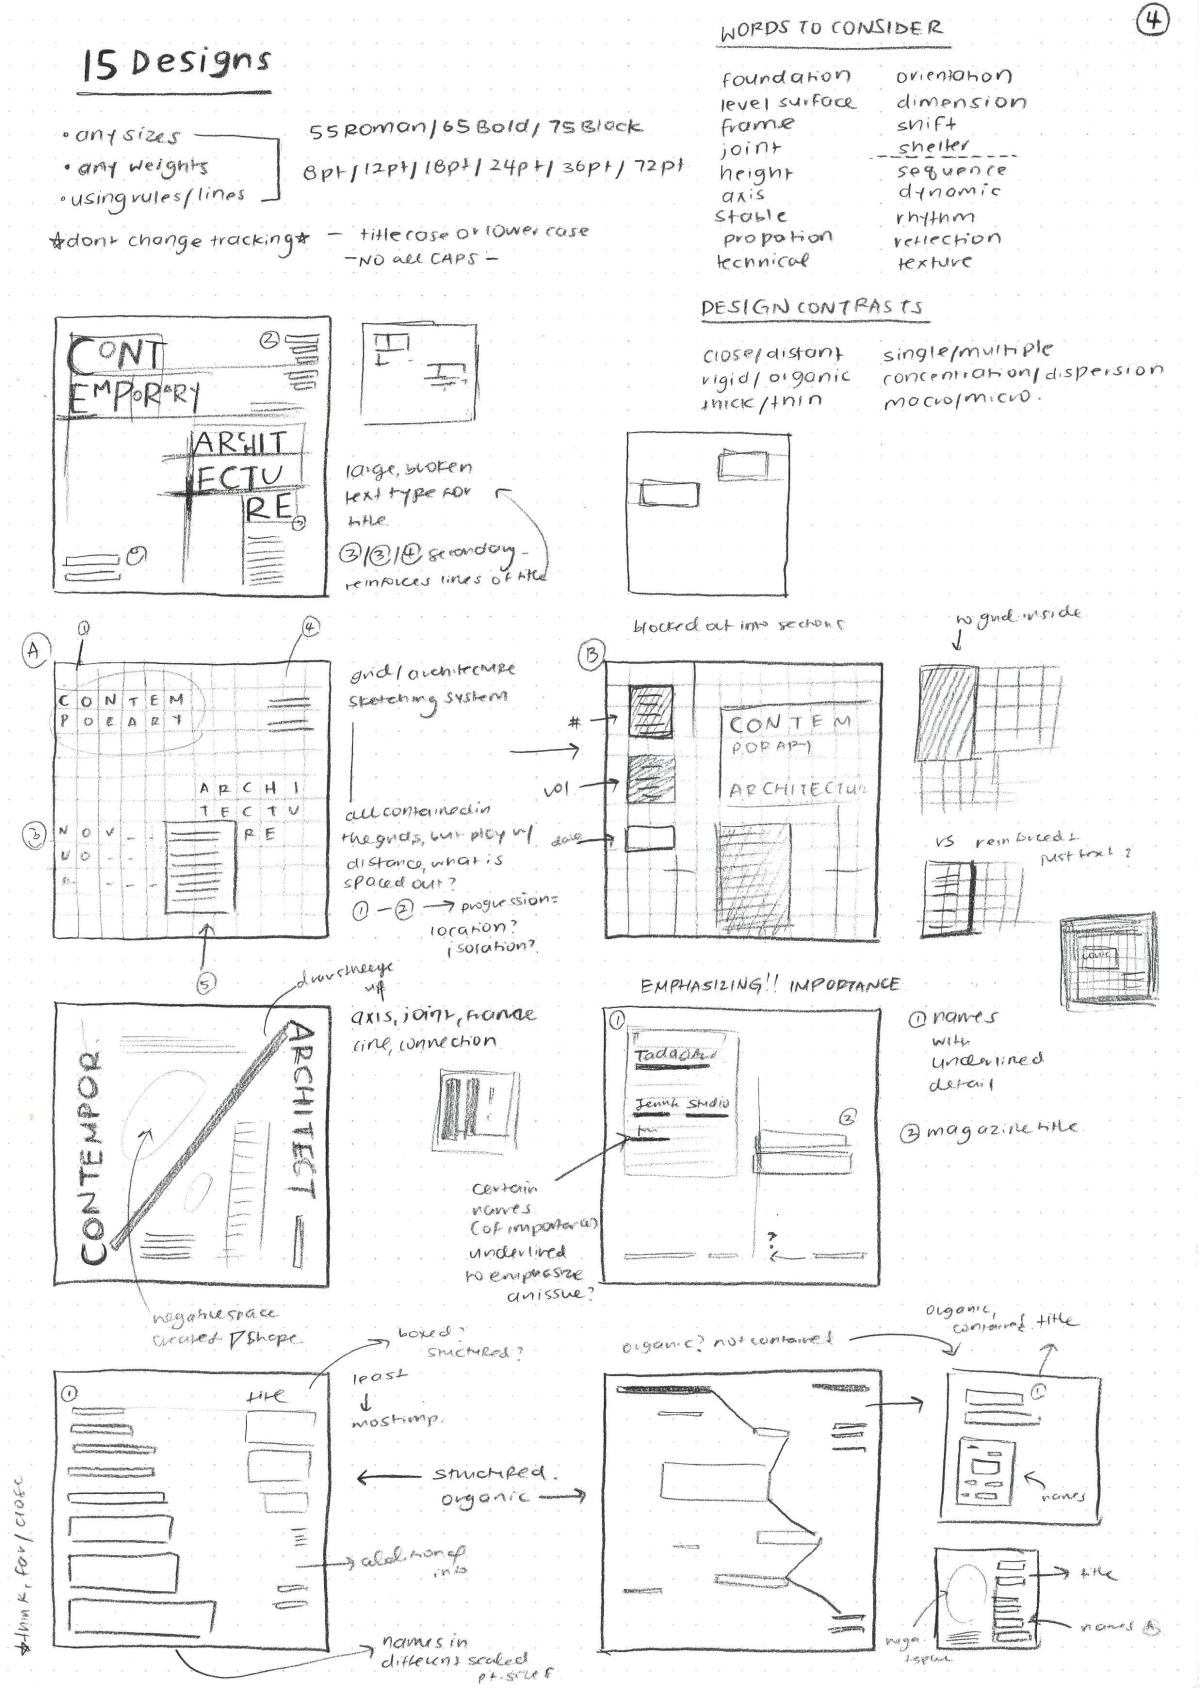 4
15 Designs
• any sizes
• any weights
• using rules/lines
55 Roman/65 Bold/75 Black
8pt/12pt/18pt/24pt/36pt/72pt
☆dont change tracking☆ – title case or lower case
– NO all CAPS –
WORDS TO CONSIDER
foundation
level surface
frame
joint
height
axis
stable
propation
technical
orientation
dimension
shift
shelter
sequence
dynamic
rhythm
reflection
texture
DESIGN CONTRASTS
close/distant
rigid/organic
thick/thin
single/multiple
concentration/dispersion
macro/micro.
CONT
EMPORARY
ARCHIT
ECTU
RE
2
large, broken
text type for
title.
3/3/4 secondary
reinforces lines of title
A
1
4
CONTEM
PORARY
ARCHI
TECTU
RE
NOV--
3
5
grid/architecture
sketching system
all contained in
the grids, but play w/
distance, what is
spaced out?
1 – 2 → progression =
location?
isolation?
blocked out into sections
B
#
vol
date
CONTEM
PORARY
ARCHITECTU
no grid inside
vs reinforced +
just text?
CONTEMPOR.
ARCHITECT
axis, joint, frame
line, connection
negative space
created ▽ shape.
EMPHASIZING!! IMPORTANCE
1
Studio
2
?
1 names
with
underlined
detail
2 magazine title
certain
names
(of importance)
underlined
to emphasize
an issue?
1
title
boxed?
structured?
least
↓
most imp.
← structured.
organic →
additional
info
names in
different scaled
pt. sizes
☆think, far/close
organic? not contained
organic,
contained title
1
names
title
names
nega.
space